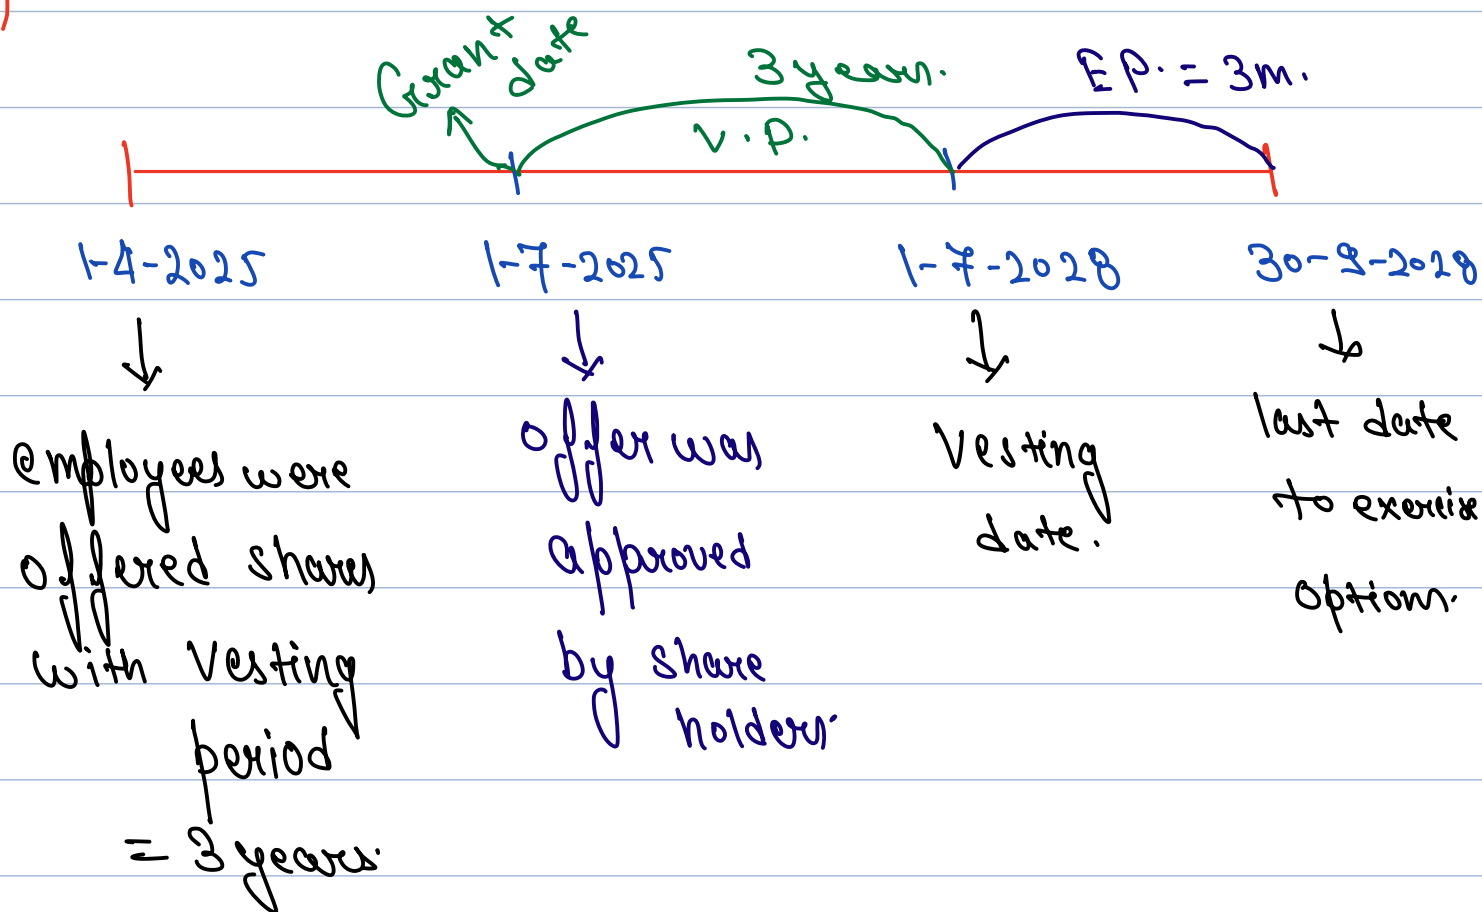 Grant
date
3 years.
V.P.
EP. = 3m.
1-4-2025
1-7-2025
1-7-2028
30-9-2028
employees were
offered shares
with Vesting
period
= 3 years.
offer was
approved
by share
holders.
Vesting
date.
last date
to exercise
option.